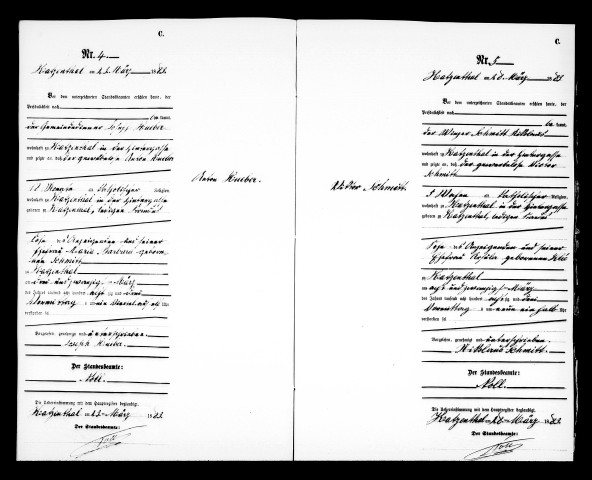 C.
Nr. 4.
Katzenthal am 22. März 188
Vor dem unterzeichneten Standesbeamten erschien heute, der
Persönlichkeit nach
kannt,
der Gemeindediener Joseph Hueber
wohnhaft in Katzenthal in der Hintergasse
und zeigte an, daß der gewerblose Anton Hueber
Anton Hueber.
Monate alt, katholischer Religion,
wohnhaft in Katzenthal in der Hintergasse
geboren zu Katzenthal, ledigen Standes
Sohn des Anzeigenden und seiner
Ehefrau Maria Barbara gebore-
nen Schmitt
zu Katzenthal
am zwei und zwanzig ten März
des Jahres tausend acht hundert achtzig und
Vormittag um ein Viertel auf acht Uhr
verstorben sei
Vorgelesen, genehmigt und unterschrieben
Joseph Hueber.
Der Standesbeamte:
Noll.
Die Uebereinstimmung mit dem Hauptregister beglaubigt.
Katzenthal am 22. März 188
Der Standesbeamte:
Noll
C.
Nr. 5.
Katzenthal am März 188
Vor dem unterzeichneten Standesbeamten erschien heute, der
Persönlichkeit nach
kannt,
der Winzer Schmitt
wohnhaft in Katzenthal in der Hintergasse
und zeigte an, daß der gewerblose Victor
Schmitt
Victor Schmitt.
Wochen alt, katholischer Religion,
wohnhaft zu Katzenthal in der Hintergasse
geboren zu Katzenthal, ledigen Standes
Sohn des Anzeigenden und seiner
Ehefrau Rosalie geborenen
zu Katzenthal
am acht und zwanzig ten März
des Jahres tausend acht hundert achtzig und
Vormittag um neun ein halb Uhr
verstorben sei
Vorgelesen, genehmigt und unterschrieben
Schmitt.
Der Standesbeamte:
Noll.
Die Uebereinstimmung mit dem Hauptregister beglaubigt.
Katzenthal am 28. März 188
Der Standesbeamte:
Noll